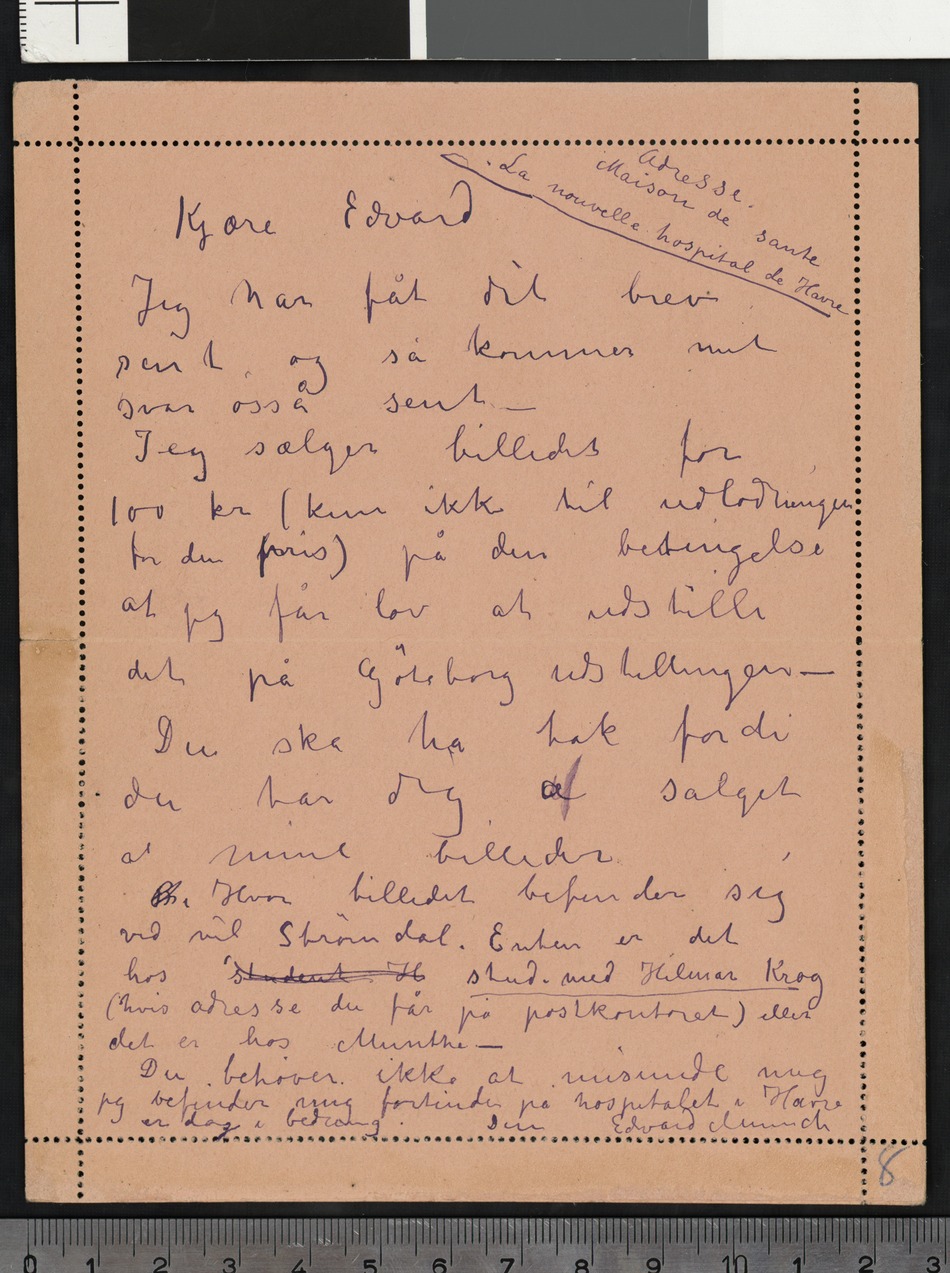 Adresse.
Maison de sante
La nouvelle hospital de Havre
Kjære Edvard
Jeg har fåt dit brev
sent og så kommer mit
svar osså sent —
Jeg sælger billedet for
100 kr (kun ikke til udlodningen
for den pris) på den betingelse
at jeg får lov at udstille
det på Göteborg udstillingen —
Du ska ha tak fordi
du tar dig af salget
at mine billeder
Hvor billedet befinder sig
ved vil Strömdal. Enten er det
hos student H stud. med Hilmar Krog
(hvis adresse du får på postkontoret) eller
det er hos Munthe —
Du behøver ikke at misunde mig
jeg befinder mig fortiden på hospitalet i Havre
er dog i bedring. Din Edvard Munch
8
0 1 2 3 4 5 6 7 8 9 10 1 2 3